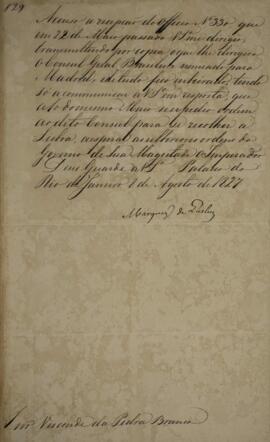 129
Accuso a recepção do Officio Nº 330 que
em 22 de Maio passado V Sª me dirigio,
transmittindo por copia o que lhe dirigira
o Consul Geral Brasileiro nomeado para
Madrid, e de tudo fico inteirado; tendo
só a communicar a V Sª em resposta, que
do mesmo se expedio ordem
ao dito Consul para se recolher a
Lisboa, a esperar as ulteriores ordens do
Governo de Sua Magestade o Imperador
Deus Guarde a V Sª Palacio do
Rio de Janeiro 8 de Agosto de 1827
Marquez de Queluz
Snr Visconde da Pedra Branca